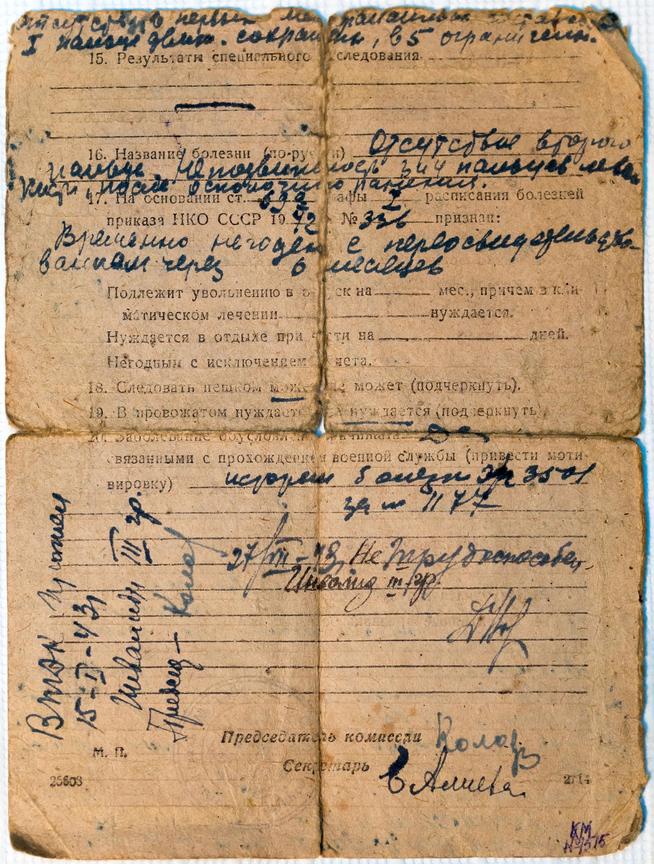 Отсутствует первых
I пальца движ. сохранены, в 5 ограничены.
15. Результаты специального исследования
16. Название болезни (по-русски) Отсутствие второго
пальца, неподвижность 3 и 4 пальцев левой
кисти, после осколочного ранения.
17. На основании ст. графы расписания болезней
приказа НКО СССР 1942 № 336 признан:
Временно негоден с переосвидетельство-
ванием через 6 месяцев
Подлежит увольнению в отпуск на мес., причем в кли-
матическом лечении нуждается.
Нуждается в отдыхе при части на дней.
Негодным с исключением с учета.
18. Следовать пешком может не может (подчеркнуть).
19. В провожатом нуждается не нуждается (подчеркнуть)
20. Заболевание обусловлено причинами
связанными с прохождением военной службы (привести моти-
вировку) история болезни ЭГ 3501
за № 1177
27/VII-43. Не трудоспособен,
Инвалид III гр.
ВТЭК
15-II-43
Инвалид III гр.
Председатель комиссии
Секретарь Алиева
М. П.
25603
2714
КМ
№